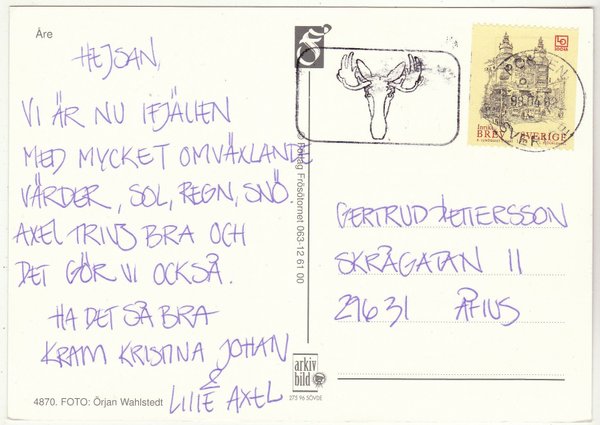 Åre
HEJSAN,
VI ÄR NU I FJÄLLEN
MED MYCKET OMVÄXLANDE
VÄRDER, SOL, REGN, SNÖ.
AXEL TRIVS BRA OCH
DET GÖR VI OCKSÅ.
HA DET SÅ BRA
KRAM KRISTINA JOHAN
&
LILLE AXEL
4870. FOTO: Örjan Wahlstedt
Förlag Frösötornet 063-12 61 00
arkiv
bild
275 96 SÖVDE
LO
BREV SVERIGE
GERTRUD PETTERSSON
SKRÅGATAN 11
29631 ÅHUS